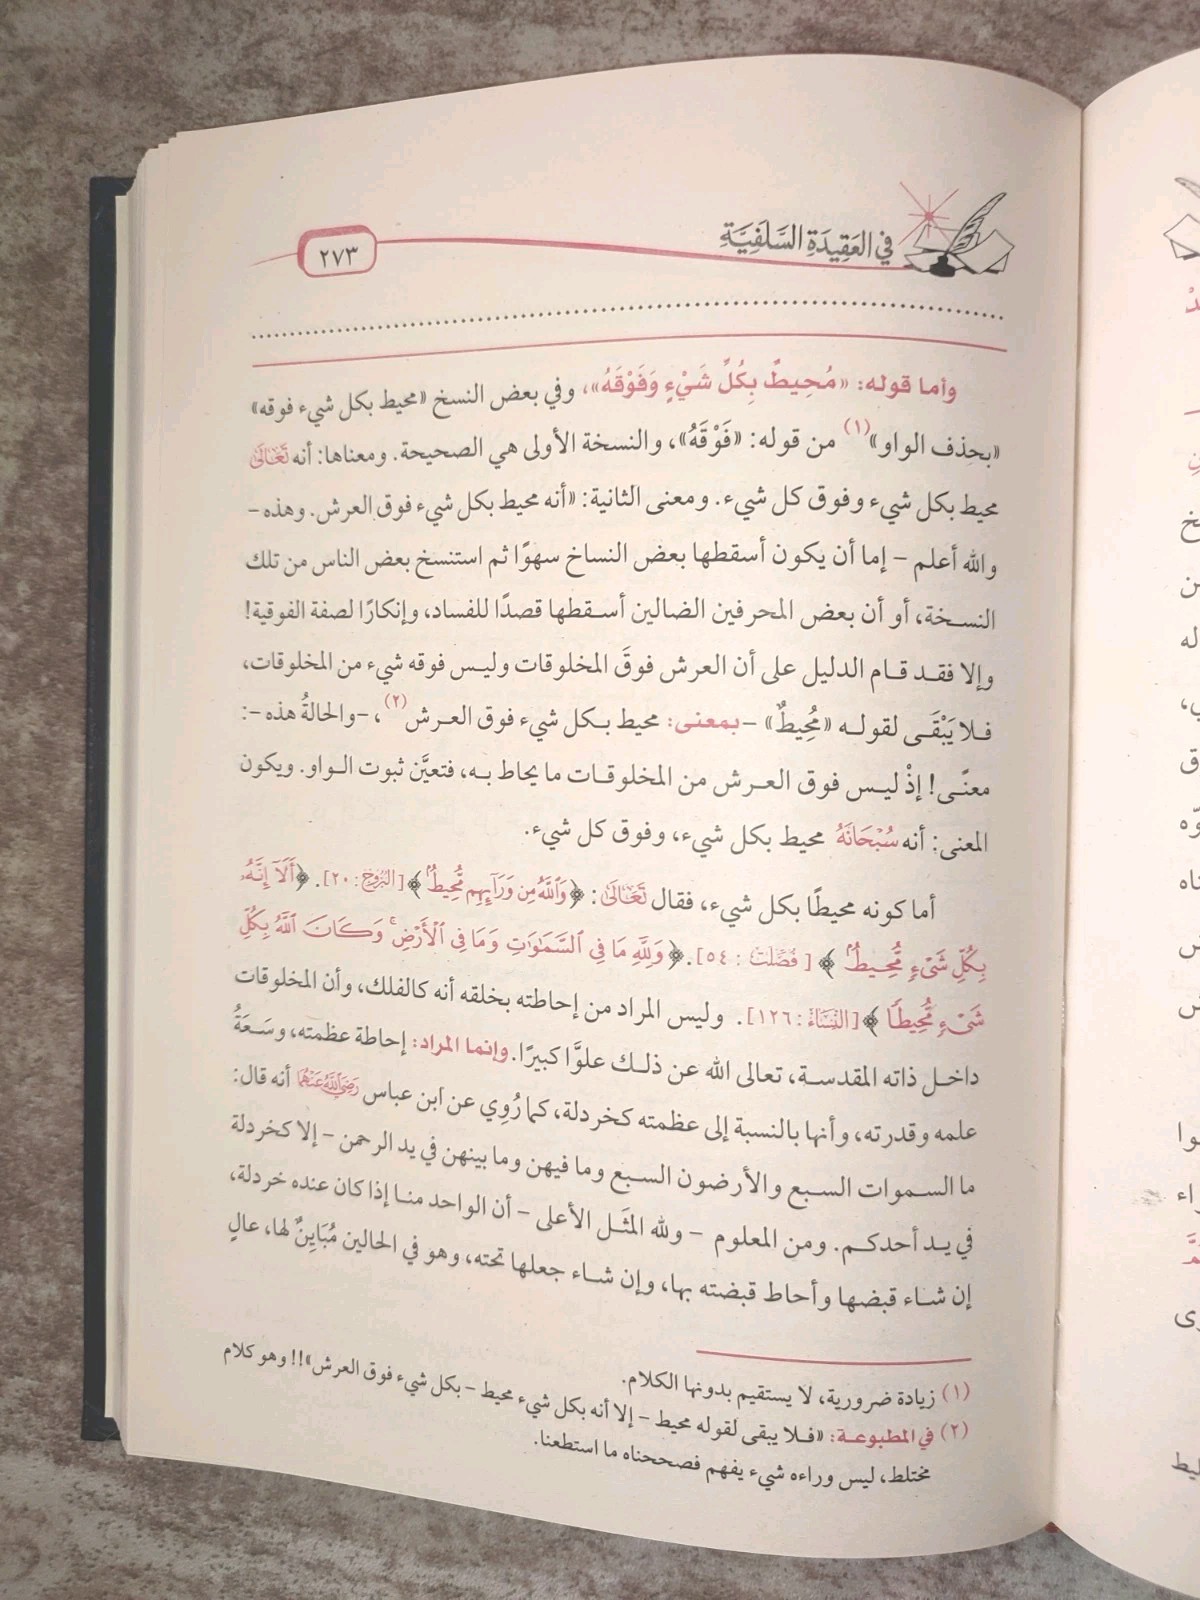 في العَقِيدَةِ السَّلَفِيَّةِ
٢٧٣
وأما قوله: «مُحِيطٌ بِكُلِّ شَيْءٍ وَفَوْقَهُ»، وفي بعض النسخ «محيط بكل شيء فوقه»
«بحذف الواو»(١) من قوله: «فَوْقَهُ»، والنسخة الأولى هي الصحيحة. ومعناها: أنه تَعَالَىٰ
محيط بكل شيء وفوق كل شيء. ومعنى الثانية: «أنه محيط بكل شيء فوق العرش. وهذه –
والله أعلم – إما أن يكون أسقطها بعض النساخ سهوًا ثم استنسخ بعض الناس من تلك
النسخة، أو أن بعض المحرفين الضالين أسقطها قصدًا للفساد، وإنكارًا لصفة الفوقية!
وإلا فقد قام الدليل على أن العرش فوقَ المخلوقات وليس فوقه شيء من المخلوقات،
فلا يَبْقَى لقوله «مُحِيطٌ» –بمعنى: محيط بكل شيء فوق العرش(٢)، –والحالةُ هذه–:
معنًى! إذْ ليس فوق العرش من المخلوقات ما يحاط به، فتعيَّن ثبوت الواو. ويكون
المعنى: أنه سُبْحَانَهُ محيط بكل شيء، وفوق كل شيء.
أما كونه محيطًا بكل شيء، فقال تَعَالَىٰ: ﴿وَٱللَّهُ مِن وَرَآئِهِم مُّحِيطٌ﴾ [البُرُوج: ٢٠]. ﴿أَلَآ إِنَّهُۥ
بِكُلِّ شَىْءٍ مُّحِيطٌ﴾ [فُصِّلَتْ: ٥٤]. ﴿وَلِلَّهِ مَا فِى ٱلسَّمَٰوَٰتِ وَمَا فِى ٱلْأَرْضِ ۚ وَكَانَ ٱللَّهُ بِكُلِّ
شَىْءٍ مُّحِيطًا﴾ [النِّسَاء: ١٢٦]. وليس المراد من إحاطته بخلقه أنه كالفلك، وأن المخلوقات
داخل ذاته المقدسة، تعالى الله عن ذلك علوًّا كبيرًا. وإنما المراد: إحاطة عظمته، وسَعَةُ
علمه وقدرته، وأنها بالنسبة إلى عظمته كخردلة، كما رُوِي عن ابن عباس رَضِيَ اللَّهُ عَنْهُمَا أنه قال:
ما السموات السبع والأرضون السبع وما فيهن وما بينهن في يد الرحمن – إلا كخردلة
في يد أحدكم. ومن المعلوم – ولله المثَل الأعلى – أن الواحد منا إذا كان عنده خردلة،
إن شاء قبضها وأحاط قبضته بها، وإن شاء جعلها تحته، وهو في الحالين مُبَايِنٌ لها، عالٍ
(١) زيادة ضرورية، لا يستقيم بدونها الكلام.
(٢) في المطبوعة: «فلا يبقى لقوله محيط – إلا أنه بكل شيء محيط – بكل شيء فوق العرش»!! وهو كلام
مختلط، ليس وراءه شيء يفهم فصححناه ما استطعنا.